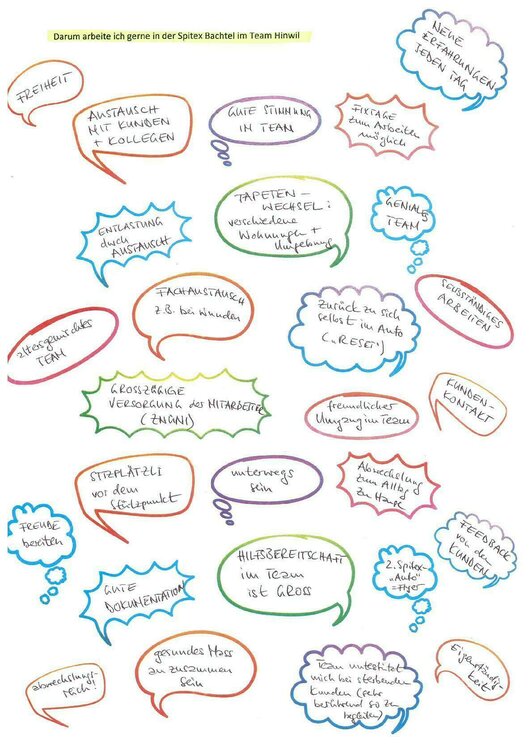 Darum arbeite ich gerne in der Spitex Bachtel im Team Hinwil
NEUE
ERFAHRUNGEN
JEDEN TAG
FREIHEIT
AUSTAUSCH
MIT KUNDEN
+ KOLLEGEN
GUTE STIMMUNG
IM TEAM
FIXTAGE
zum Arbeiten
möglich
ENTLASTUNG
durch
AUSTAUSCH
TAPETEN-
WECHSEL:
verschiedene
Wohnungen +
Umgebung
GENIALES
TEAM
altersgemischtes
TEAM
FACHAUSTAUSCH
z.B. bei Wunden
Zurück zu sich
selbst im Auto
("RESET")
SELBSTÄNDIGES
ARBEITEN
GROSSZÜGIGE
VERSORGUNG der MITARBEITER
(ZNÜNI)
freundlicher
Umgang im Team
KUNDEN-
KONTAKT
SITZPLÄTZLI
vor dem
Stützpunkt
unterwegs
sein
Abwechslung
zum Alltag
zu Hause
FREUDE
bereiten
GUTE
DOKUMENTATION
HILFSBEREITSCHAFT
im Team
ist GROSS
2. Spitex-
"Auto"
=Flyer
FEEDBACK
von den
KUNDEN
abwechslungs-
reich!
gesundes Mass
an zusammen
sein
Team unterstützt
mich bei sterbenden
Kunden (sehr
berührend so zu
begleiten)
Eigenständig-
keit